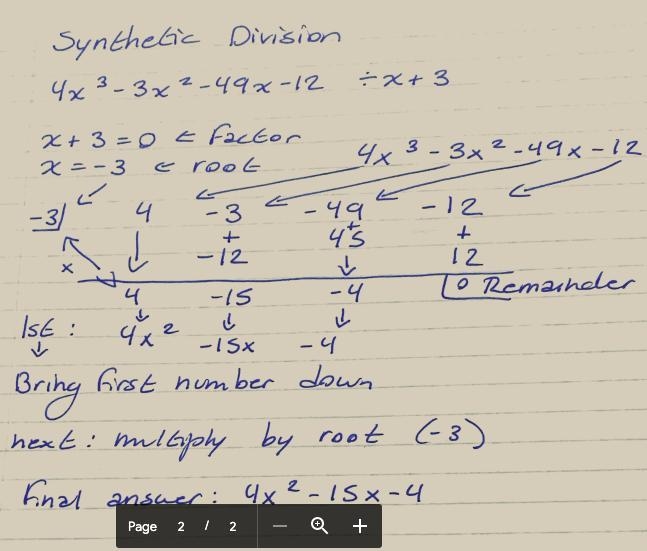 Synthetic Division
4x³ - 3x² - 49x - 12 ÷ x + 3
x + 3 = 0 ← Factor
x = -3 ← root
4x³ - 3x² - 49x - 12
-3 4 -3 -49 -12
+ + +
-12 45 12
x
4 -15 -4 0 Remainder
1st : 4x² -15x -4
Bring first number down
next : multiply by root (-3)
Final answer : 4x² - 15x - 4
Page 2 / 2 — +